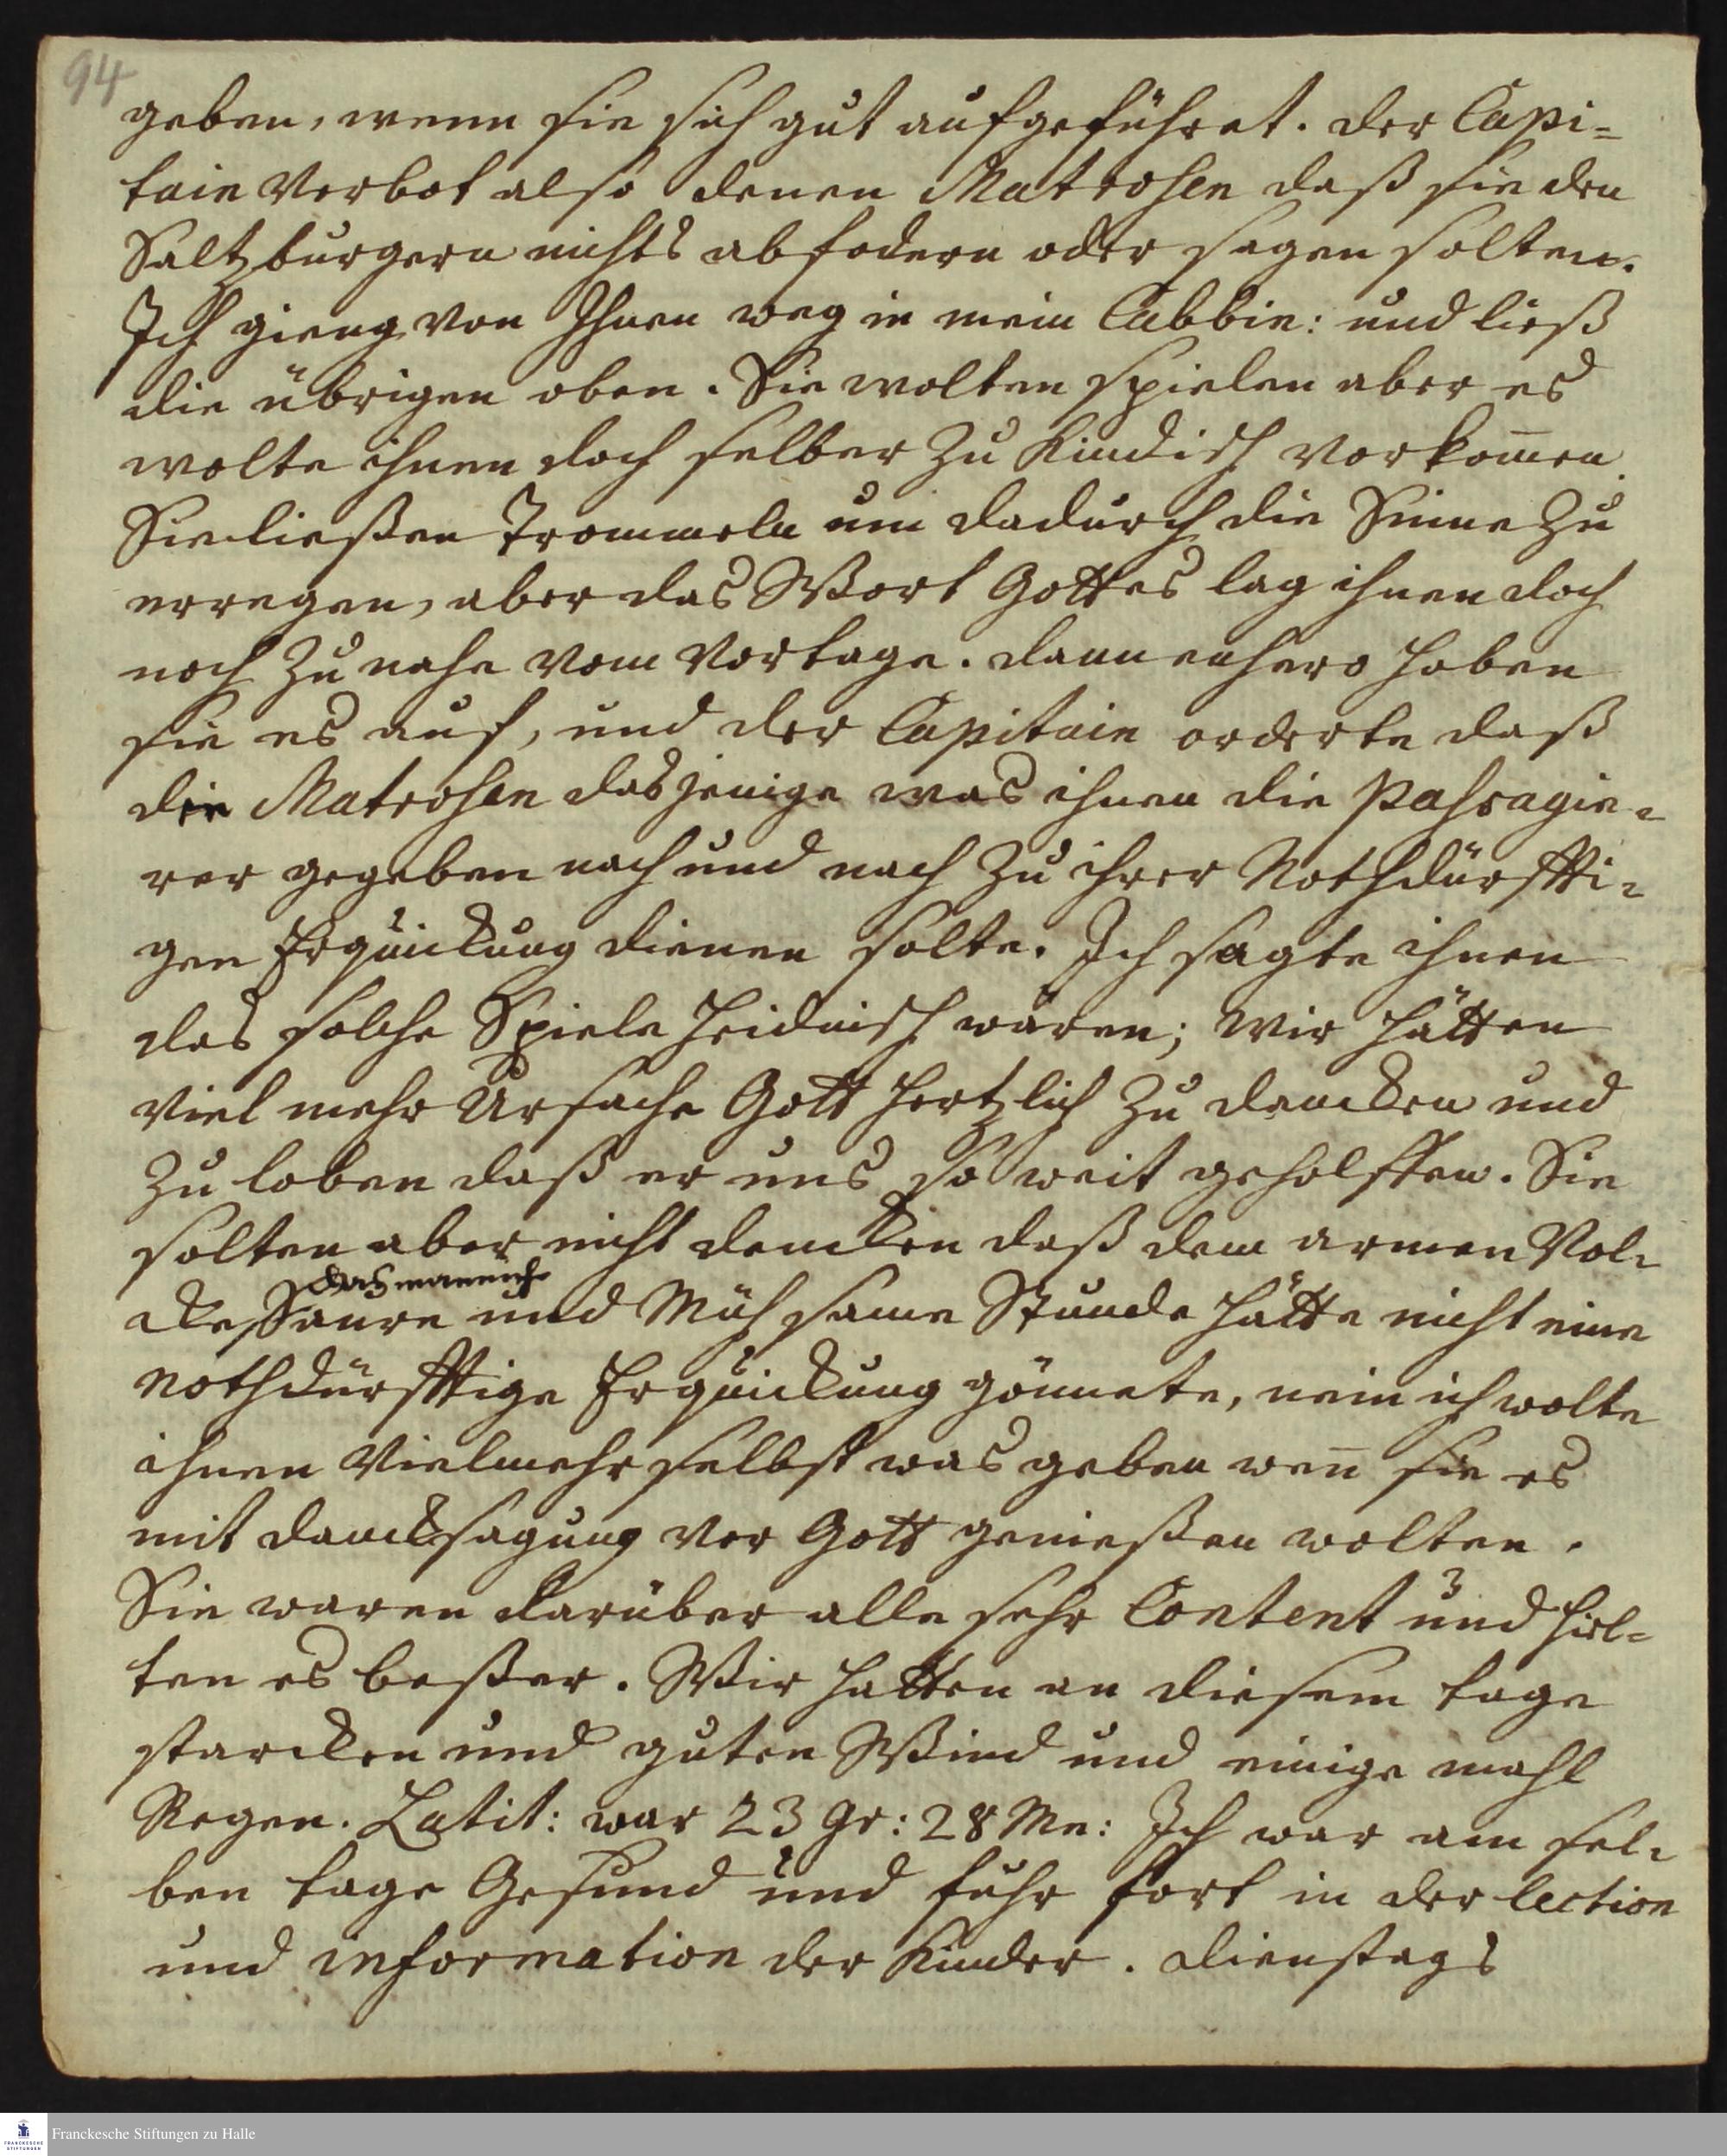 94
geben, wenn sie sich gut aufgeführet. der Capi=
tain verbot also denen Matrosen daß sie den
Saltzburgern nichts abfodern oder sagen solten.
Ich gieng von Ihnen weg in mein Cabbin: und ließ
die übrigen oben. Sie wolten spielen aber es
wolte ihnen doch selber zu Kindisch vorkom̄en.
Sie ließen Trommeln um dadurch die Sinne zu
erregen, aber das Wort Gottes lag ihnen doch
noch zu nahe vom vortage. dannenhero hoben
sie es auf, und der Capitain orderte daß
die Matrosen dasjenige was ihnen die Passagie=
rer gegeben nach und nach zu ihrer Nothdürffti=
gen Erquickung dienen solte. Ich sagte ihnen
das solche Spiele Heidnisch wären; Wir hätten
viel mehr Ursache Gott hertzlich zu dancken und
zu loben daß er uns so weit geholffen. Sie
solten aber nicht dencken daß dem armen Vol=
das manche
cke Saure und Mühsame Stunde hätte nicht eine
nothdürfftige Erquickung gönnete, nein ich wolte
ihnen Vielmehr selbst was geben wen̄ sie es
mit dancksagung vor Gott genießen wolten.
Sie waren darüber alle sehr Content und hiel=
ten es beßer. Wir hatten an diesem tage
starcken und guten Wind und einige mahl
Regen. Latit: war 23 Gr: 28 Mn: Ich war am sel=
ben tage Gesund und fuhr fort in der lection
und information der Kinder. dienstags
FRANCKESCHE STIFTUNGEN
Franckesche Stiftungen zu Halle